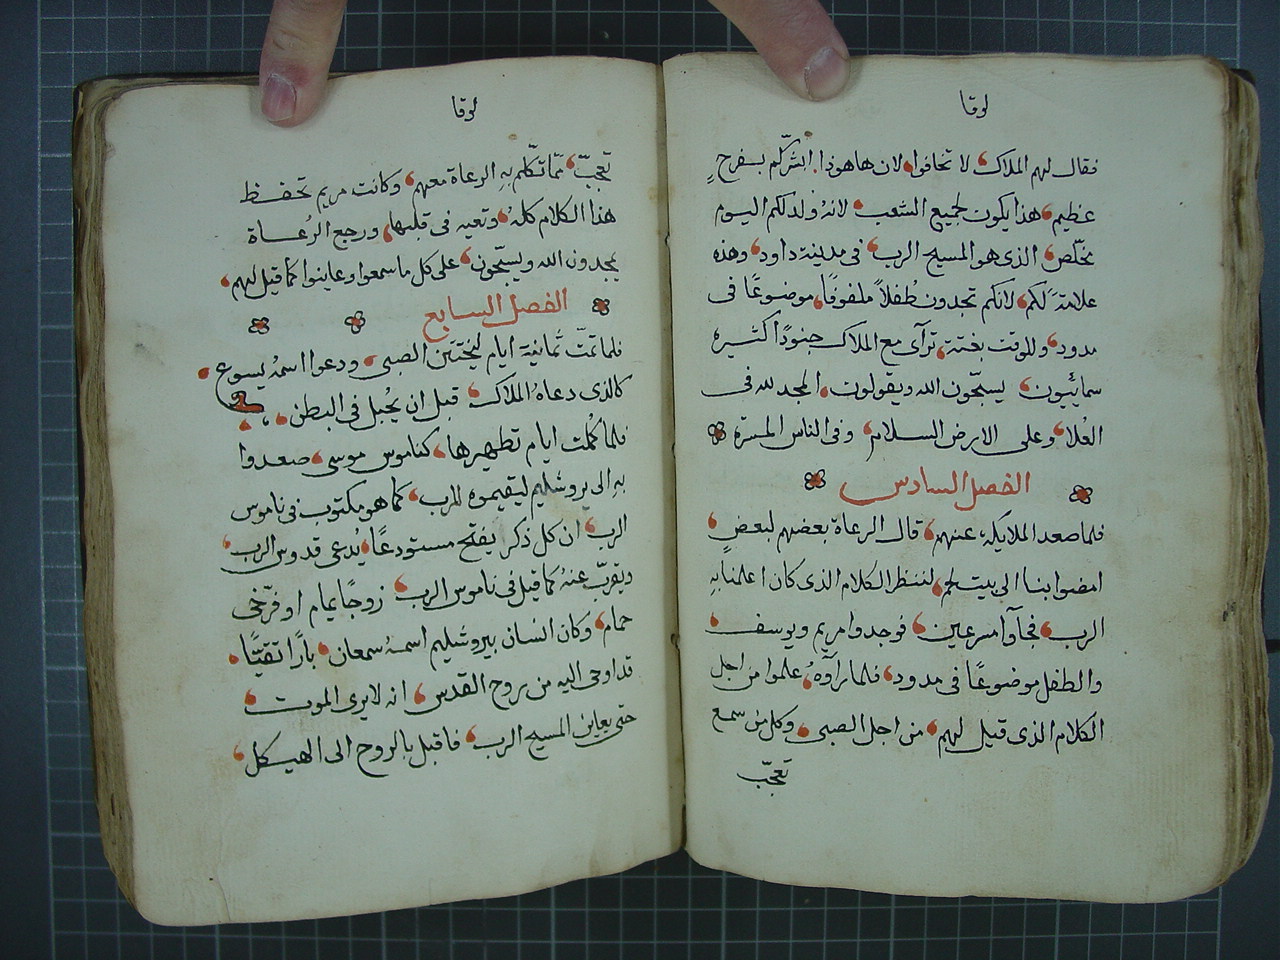 لوقا
فقال لهم الملاك، لا تخافوا، لان هاهوذا ابشركم بفرحٍ
عظيم، هذا يكون لجميع الشعب، لانهُ ولد لكم اليوم
مخلّص، الذى هو المسيح الرب، فى مدينة داود، وهذه
علامة لكم، لانكم تجدون طُفلاً ملفوفًا، موضوعًا فى
مدود، وللوقت بغتة، ترآى مع الملاك جنودًا كثيره
سمائيون، يسبّحون الله ويقولون، المجد لله فى
العُلا، وعلى الارض السلام، وفى الناس المسرّة
الفصل السادس
فلما صعد الملايكة عنهم، قال الرعاة بعضهم لبعضٍ،
امضوا بنا الى بيت لحم، لننظر الكلام الذى كان اعلمنا بهِ
الرب، فجآوا مسرعين، فوجدوا مريم ويوسف،
والطفل موضوعًا فى مدود، فلما رآوهُ، علموا من اجل
الكلام الذى قيل لهم، من اجل الصبى، وكل من سمع
تعجّب
لوقا
تعجّب، ممّا تكلّم بهِ الرعاة معهم، وكانت مريم تحفظ
هذا الكلام كلهُ، وتعيه فى قلبها، ورجع الرُعاة
يمجدون الله ويسبّحون، على كل ما سمعوا وعاينوا كما قيل لهم،
الفصل السابع
فلما تمّت ثمانية ايام ليُختَتَن الصبى، ودعوا اسمهُ يسوع،
كالذى دعاهُ الملاك، قبل ان يُحبل فى البطن،
فلما كملت ايام تطهيرها، كناموس موسى، صعدوا
بهِ الى يروشليم ليقيموه للرب، كما هو مكتوب فى ناموس
الرب، ان كل ذكر يفتح مستودعًا، يُدعى قدوس الرب،
ويقرّب عنهُ كما قيل فى ناموس الرب، زوجًا يمام او فرّخى
حمام، وكان انسان بيروشليم اسمهُ سمعان، بارًا تقيًّا،
قد اوحى اليه من روح القدس، انه لا يرى الموت،
حتى يعاين المسيح الرب، فاقبل بالروح الى الهيكل،